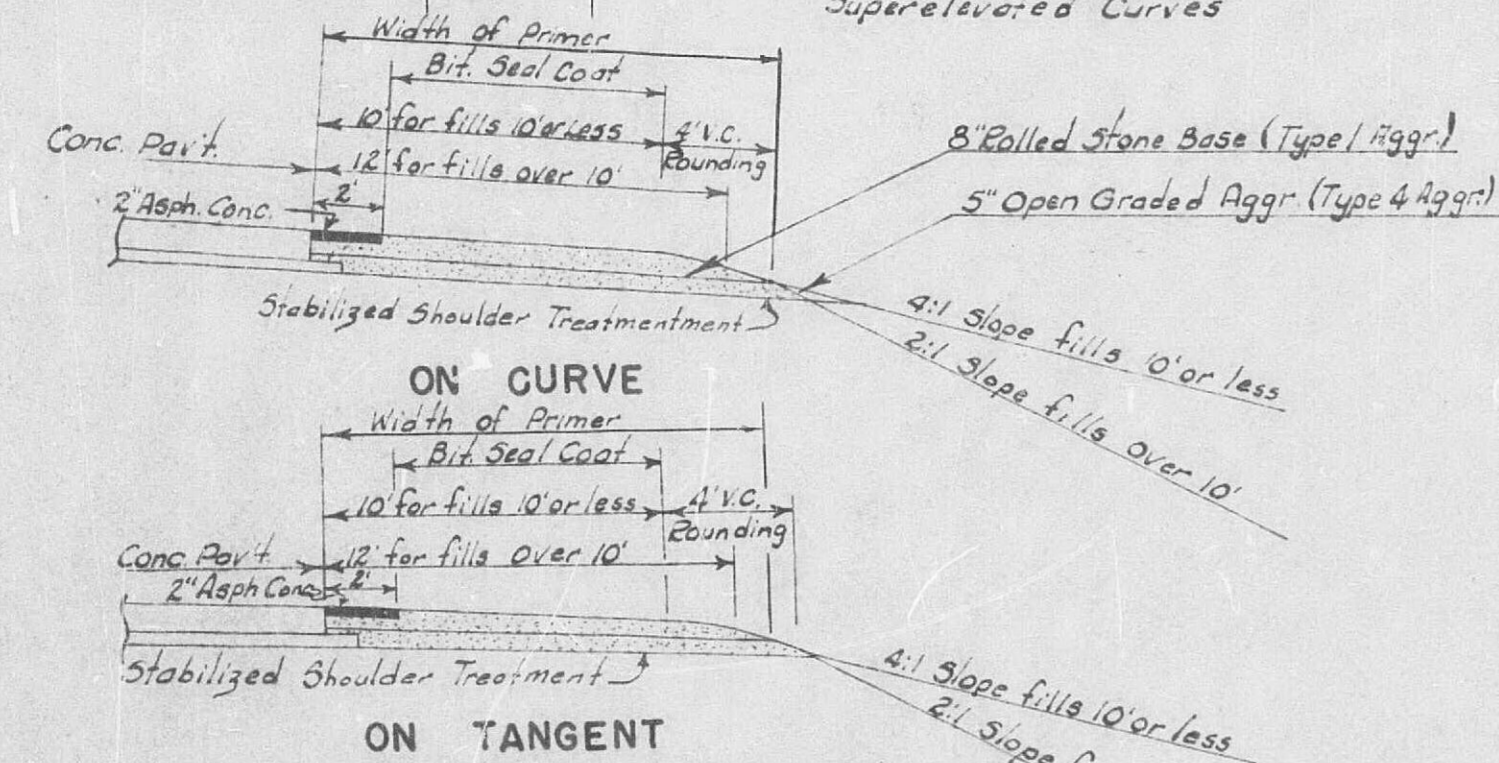 Superelevated Curves
Width of Primer
Bit. Seal Coat
10' for fills 10' or Less
4' V.C.
Rounding
Conc. Pav't.
12' for fills over 10'
2'
2" Asph. Conc.
8" Rolled Stone Base (Type 1 Aggr.)
5" Open Graded Aggr. (Type 4 Aggr.)
Stabilized Shoulder Treatmentment
4:1 Slope fills 10' or less
2:1 Slope fills Over 10'
ON CURVE
Width of Primer
Bit. Seal Coat
10' for fills 10' or less
4' V.C.
Rounding
Conc. Pav't.
12' for fills Over 10'
2'
2" Asph Conc.
Stabilized Shoulder Treatment
4:1 Slope fills 10' or less
2:1 Slope
ON TANGENT